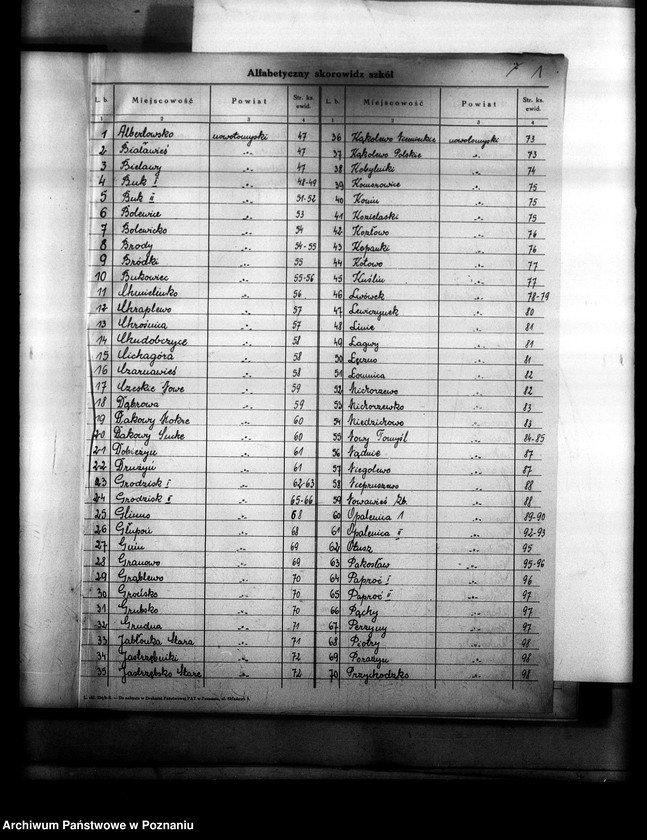 Alfabetyczny skorowidz szkół
1
L. b. Miejscowość Powiat Str. ks. ewid. L. b. Miejscowość Powiat Str. ks. ewid.
1 2 3 4 1 2 3 4
1 Albertowsko nowotomyski 47 36 Kąkolewo Niemieckie nowotomyski 73
2 Białawieś 47 37 Kąkolewo Polskie 73
3 Bielawy 47 38 Kobylniki 74
4 Buk I 48-49 39 Komorowice 75
5 Buk II 51-52 40 Konin 75
6 Bolewice 53 41 Kozielaski 75
7 Bolewicko 54 42 Kozłowo 76
8 Brody 54-55 43 Kopanki 76
9 Bródki 55 44 Kotowo 77
10 Bukowiec 55-56 45 Kuślin 77
11 Chmielinko 56 46 Lwówek 78-79
12 Chraplewo 57 47 Lewiczynek 80
13 Chrośnica 57 48 Linie 81
14 Chudobczyce 58 49 Łagwy 81
15 Cichagóra 58 50 Łęczno 81
16 Czarnawieś 58 51 Łomnica 82
17 Czeskie Nowe 59 52 Michorzewo 82
18 Dąbrowa 59 53 Michorzewko 83
19 Dakowy Mokre 60 54 Niedzichowo 83
20 Dakowy Suche 60 55 Nowy Tomyśl 84-85
21 Dobieżyn 61 56 Nądnie 87
22 Drużyń 61 57 Niegolewo 87
23 Grodzisk I 62-63 58 Niepruszewo 88
24 Grodzisk II 65-66 59 Nowawieś Zb. 88
25 Glinno 68 60 Opalenica I 89-90
26 Głuponie 68 61 Opalenica II 92-93
27 Gnin 69 62 Otusz 95
28 Granowo 69 63 Pakosław 95-96
29 Grąblewo 70 64 Paproć I 96
30 Grońsko 70 65 Paproć II 97
31 Grubsko 70 66 Pąchy 97
32 Grudna 71 67 Perzyny 97
33 Jabłonka Stara 71 68 Piotry 98
34 Jastrzębniki 72 69 Porażyn 98
35 Jastrzębsko Stare 72 70 Przychodzko 98
Archiwum Państwowe w Poznaniu